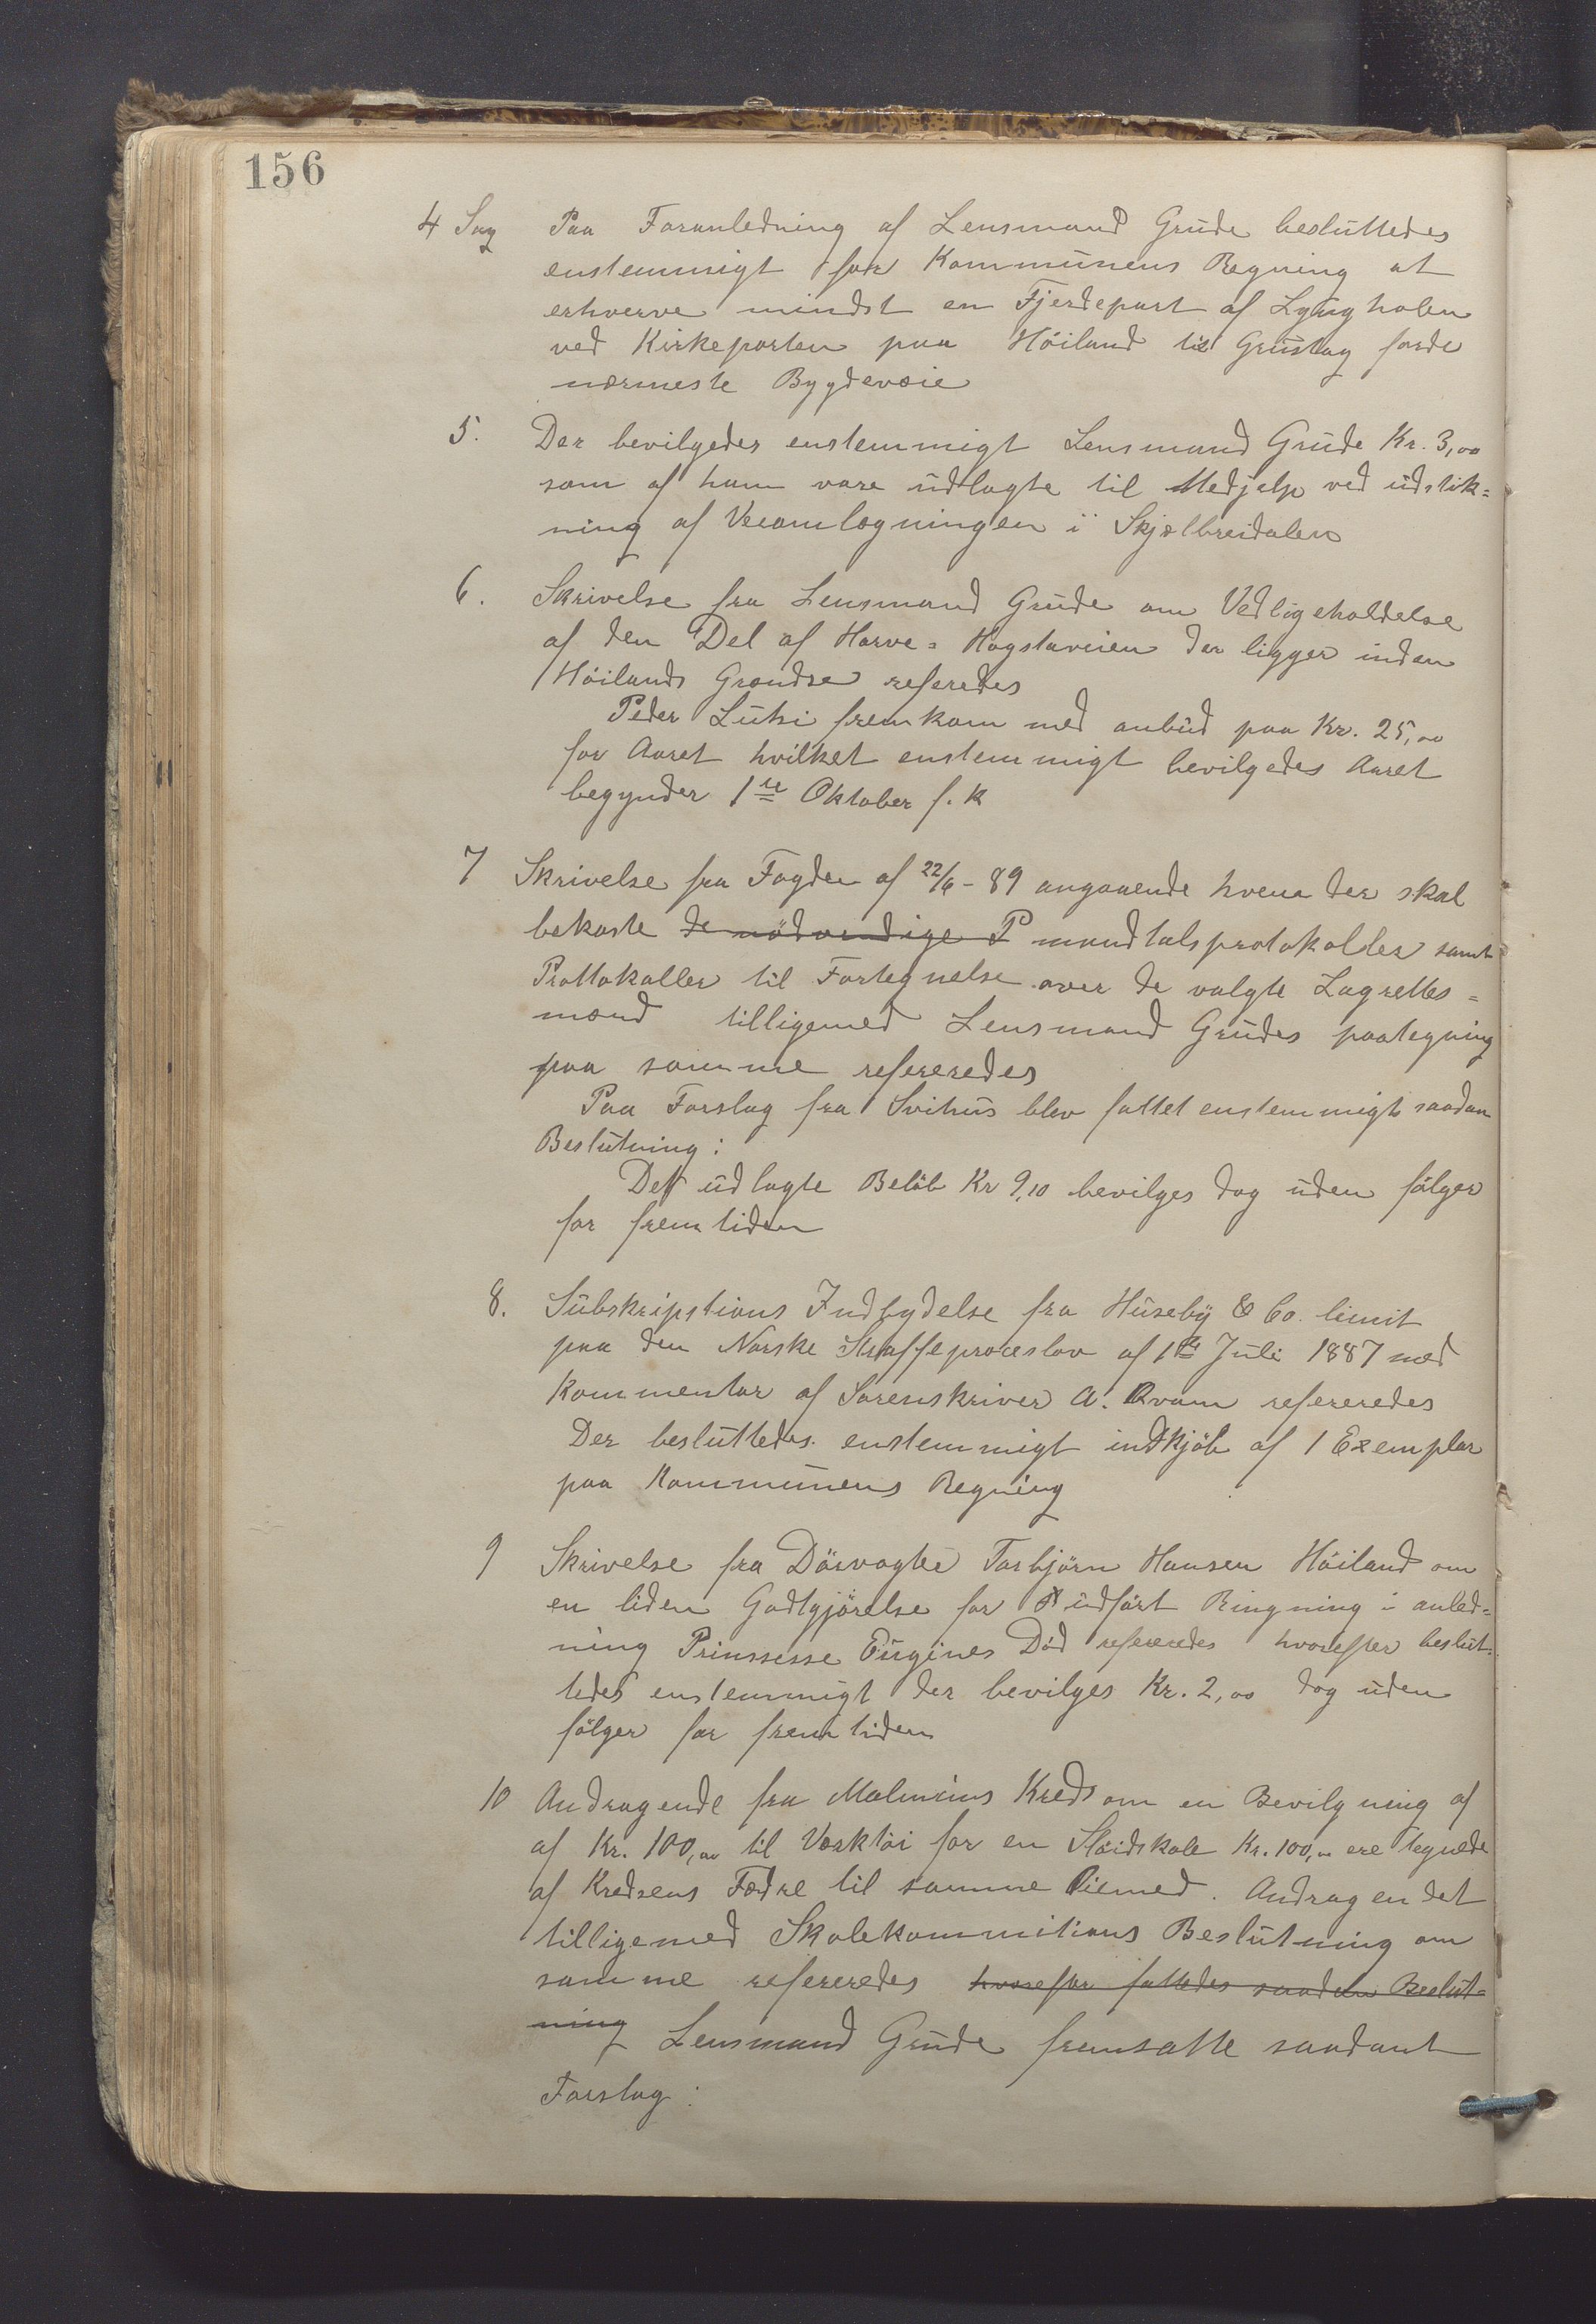 156
4 Sag Paa Foranledning af Lensmand Grude besluttedes
enstemmigt for Kommunens Regning at
erhverve mindst en Fjerdepart af Lyngholen
ved Kirkeporten paa Höiland til Grustag forde
nærmeste Bygdeveie
5. Der bevilgedes enstemmigt Lensmand Grude Kr. 3,00
som af ham vare udlagte til Medjelp ved udstik=
ning af Veiomlægningen i Skjælbreidalen
6. Skrivelse fra Lensmand Grude om Vedligeholdelse
af den Del af Horve=Hogstaveien der ligger inden
Höilands Grændse referedes
Peder Lutsi fremkom med anbud paa Kr. 25,00
for Aaret hvilket enstemmigt bevilgedes Aaret
begynder 1ste Oktober f. k
7 Skrivelse fra Fogden af 22/6-89 angaaende hvem der skal
bekoste de nödvendige P mandtalsprotokoller samt
Prottokoller til Fortegnelse over de valgte Lagrettes=
mænd tilligemed Lensmand Grudes paategning
paa samme refereredes
Paa Forslag fra Svihus blev fattet enstemmigt saadan
Beslutning:
Det udlagte Belöb Kr 9,10 bevilges dog uden fölger
for fremtiden
8. Subskripstions Indbydelse fra Huseby & Co. limit
paa den Norske Straffeproceslov af 1ste Juli 1887 med
Kommentar af Sorenskriver A. Qvam refereredes
Der besluttedes enstemmigt indkjöb af 1 Exemplar
paa Kommunens Regning
9 Skrivelse fra Dörvogter Torbjörn Hansen Höiland om
en liden Godtgjörelse for udfört Ringning i anled=
ning Prinssesse Eugines Död refereredes hvorefter beslut=
tedes enstemmigt der bevilges Kr. 2,00 dog uden
fölger for fremtiden
10 Andragende fra Malmins Kreds om en Bevilgning af
af Kr. 100,00 til Værktöi for en Slöidskole Kr. 100,00 ere tegnede
af Kredsens Fædre til samme Öiemed. Andragendet
tilligemed Skolekommitions Beslutning om
samme refereredes hvorefor fattedes saadan Beslut=
ning Lensmand Grude fremsatte saadant
Forslag: